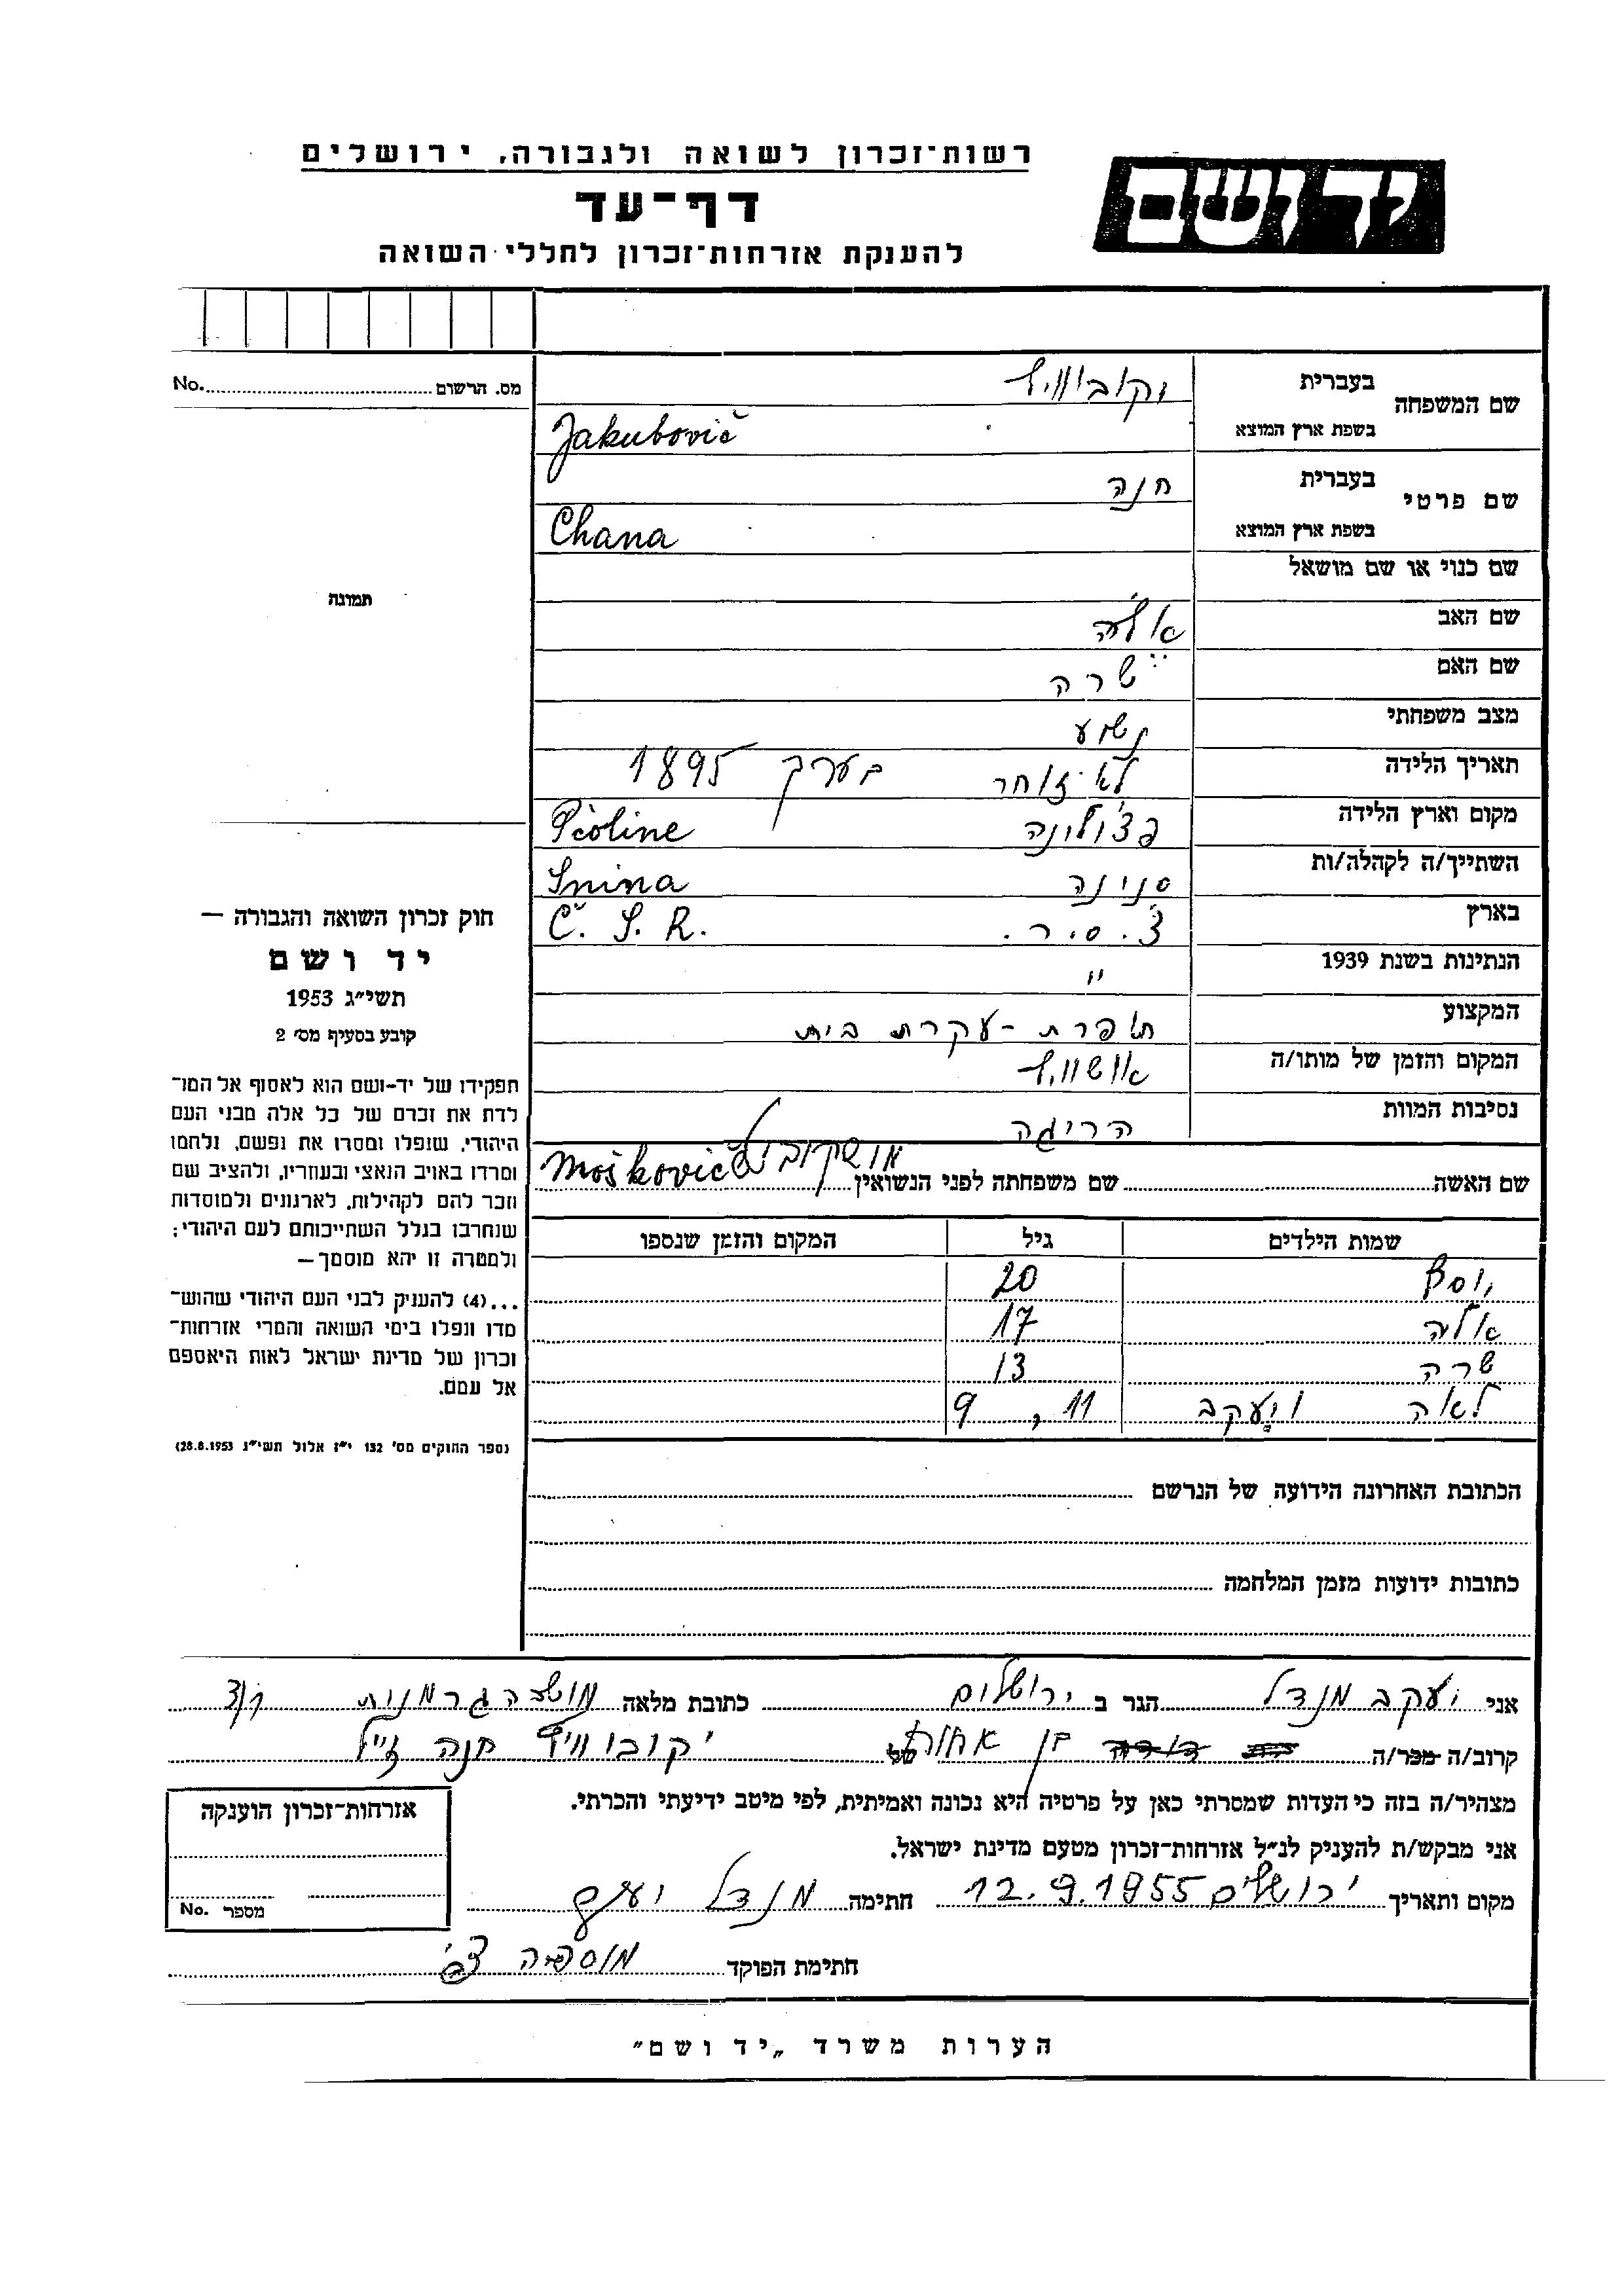 רשות־זכרון לשואה ולגבורה, ירושלים
יד ושם
דף־עד
להענקת אזרחות־זכרון לחללי השואה
מס. הרשום No.
שם המשפחה
בעברית
יקוביוויץ
בשפת ארץ המוצא
Jakubovič
שם פרטי
בעברית
חנה
בשפת ארץ המוצא
Chana
שם כנוי או שם מושאל
תמונה
שם האב
אליה
שם האם
שרה
מצב משפחתי
נשוא
תאריך הלידה
לא זוכר בערך 1895
מקום וארץ הלידה
פצ'ולינה Pčoline
השתייך/ה לקהלה/ות
סנינה Snina
בארץ
צ'.ס.ר. Č. S. R.
הנתינות בשנת 1939
"
המקצוע
תופרת - עקרת בית
המקום והזמן של מותו/ה
אושוויץ
נסיבות המוות
הריגה
שם האשה שם משפחתה לפני הנשואין מושקוביץ Moškovič
חוק זכרון השואה והגבורה —
יד ושם
תשי״ג 1953
קובע בסעיף מס׳ 2
תפקידו של יד-ושם הוא לאסוף אל המו־
לדת את זכרם של כל אלה מבני העם
היהודי, שנפלו ומסרו את נפשם, נלחמו
ומרדו באויב הנאצי ובעוזריו, ולהציב שם
וזכר להם לקהילות, לארגונים ולמוסדות
שנחרבו בגלל השתייכותם לעם היהודי;
ולמטרה זו יהא מוסמך—
...(4) להעניק לבני העם היהודי שהוש־
מדו ונפלו בימי השואה והמרי אזרחות־
זכרון של מדינת ישראל לאות היאספם
אל עמם.
(ספר החוקים מס׳ 132 י״ז אלול תשי״ג 28.8.1953)
שמות הילדים גיל המקום והזמן שנספו
יוסף 20
אליה 17
שרה 13
לאה ויעקב 11, 9
הכתובת האחרונה הידועה של הנרשם
כתובות ידועות מזמן המלחמה
אני יעקב מנדל הגר ב ירושלים כתובת מלאה מושבה גרמנית
קרוב/ה מכר/ה בן אחות של יקובוויץ חנה ז״ל
מצהיר/ה בזה כי העדות שמסרתי כאן על פרטיה היא נכונה ואמיתית, לפי מיטב ידיעתי והכרתי.
אני מבקש/ת להעניק לנ״ל אזרחות־זכרון מטעם מדינת ישראל.
מקום ותאריך ירושלים 12.9.1955 חתימה מנדל יעקב
חתימת הפוקד
אזרחות־זכרון הוענקה
מספר No.
הערות משרד „יד ושם״